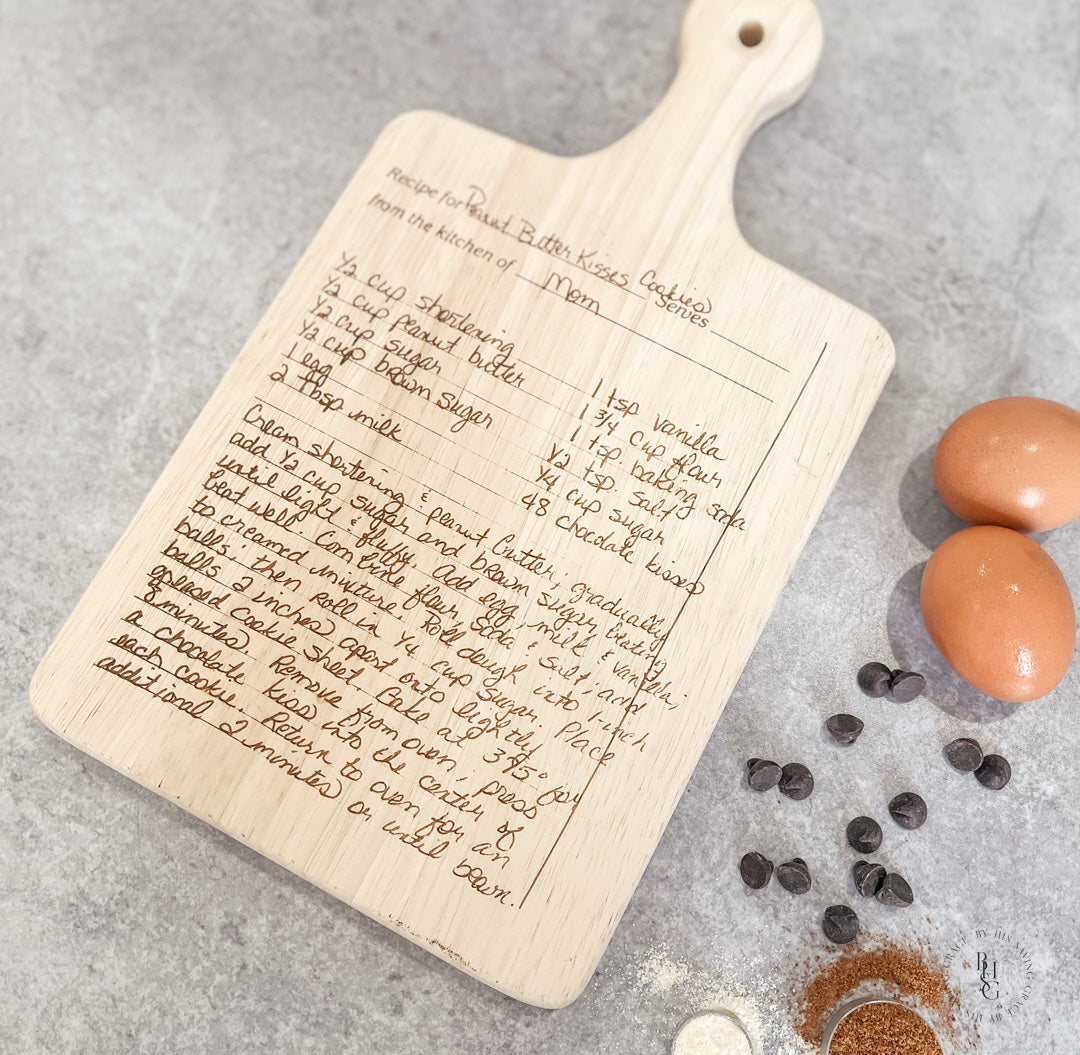 Recipe for Peanut Butter Kisses Cookies
from the kitchen of Mom Serves
½ cup shortening
½ cup peanut butter
½ cup sugar
½ cup brown sugar
1 egg
2 tbsp. milk
1 tsp vanilla
1 ¾ cup flour
1 tsp baking soda
½ tsp. salt
¼ cup sugar
48 chocolate kisses
Cream shortening & peanut butter, gradually
add ½ cup sugar and brown sugar, beating
until light & fluffy. add egg, milk & vanilla;
beat well. Combine flour, soda & salt; add
to creamed mixture. Roll dough into 1-inch
balls; then roll in ¼ cup sugar. Place
balls 2 inches apart onto lightly
greased cookie sheet. Bake at 375° for
8 minutes. Remove from oven; press
a chocolate kiss into the center of
each cookie. Return to oven for an
additional 2 minutes or until brown.
BY HIS SAVING GRACE
BY HIS SAVING GRACE
BHG